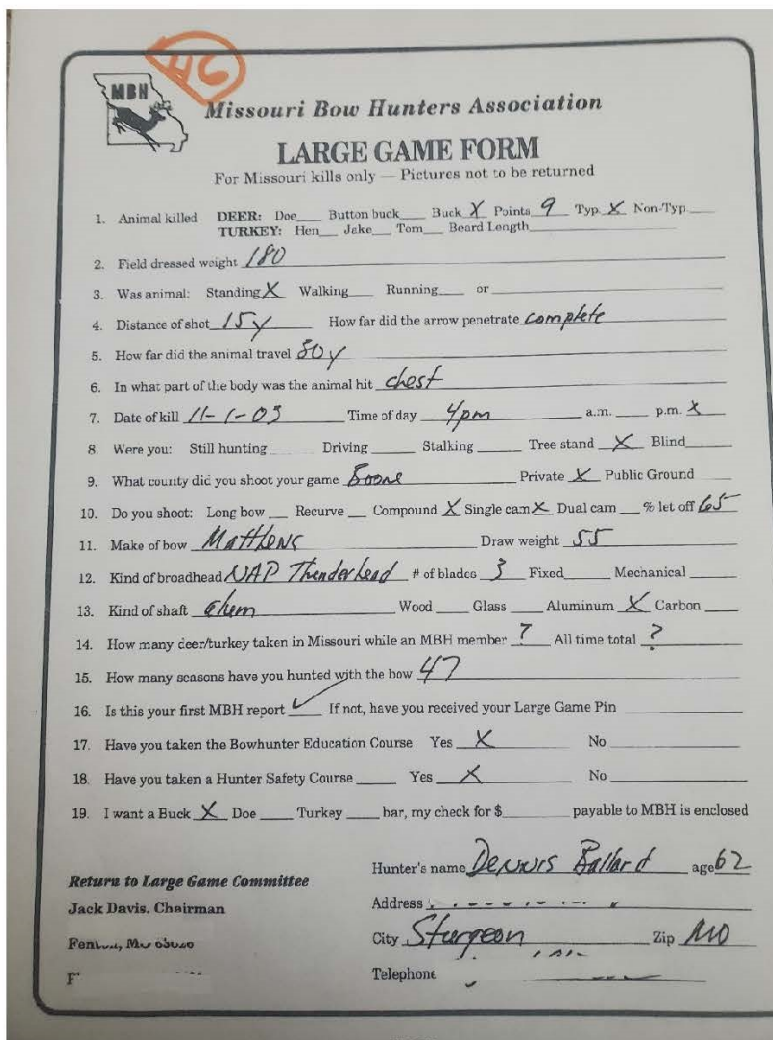 46
MBH
Missouri Bow Hunters Association
LARGE GAME FORM
For Missouri kills only — Pictures not to be returned
1. Animal killed DEER: Doe___ Button buck___ Buck X Points 9 Typ. X Non-Typ.___
TURKEY: Hen___ Jake___ Tom___ Beard Length___
2. Field dressed weight 180
3. Was animal: Standing X Walking___ Running___ or___
4. Distance of shot 15y How far did the arrow penetrate complete
5. How far did the animal travel 80y
6. In what part of the body was the animal hit chest
7. Date of kill 11-1-03 Time of day 4pm a.m. ___ p.m. X
8 Were you: Still hunting___ Driving___ Stalking___ Tree stand X Blind___
9. What county did you shoot your game Boone Private X Public Ground ___
10. Do you shoot: Long bow ___ Recurve ___ Compound X Single cam X Dual cam ___ % let off 65
11. Make of bow Matthews Draw weight 55
12. Kind of broadhead NAP Thunderhead # of blades 3 Fixed___ Mechanical ___
13. Kind of shaft alum Wood ___ Glass ___ Aluminum X Carbon ___
14. How many deer/turkey taken in Missouri while an MBH member ? All time total ?
15. How many seasons have you hunted with the bow 47
16. Is this your first MBH report ✓ If not, have you received your Large Game Pin ___
17. Have you taken the Bowhunter Education Course Yes X No ___
18. Have you taken a Hunter Safety Course ___ Yes X No ___
19. I want a Buck X Doe ___ Turkey ___ bar, my check for $___ payable to MBH is enclosed
Hunter's name Dennis Ballard age 62
Return to Large Game Committee
Jack Davis, Chairman
Address
City Sturgeon Zip MO
Telephone